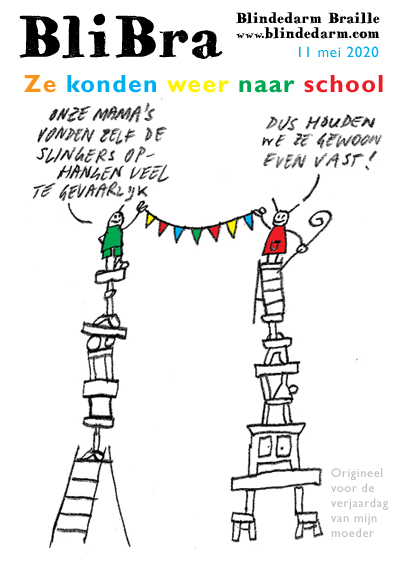 BliBra
Blindedarm Braille
www.blindedarm.com
11 mei 2020
Ze konden weer naar school
ONZE MAMA'S
VONDEN ZELF DE
SLINGERS OP-
HANGEN VEEL
TE GEVAARLIJK
DUS HOUDEN
WE ZE GEWOON
EVEN VAST!
Origineel
voor de
verjaardag
van mijn
moeder